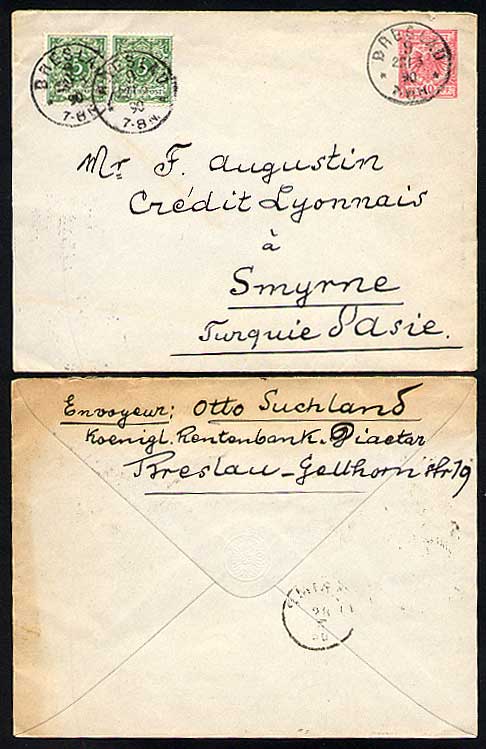 BRESLAU
90
7-8 N.
BRESLAU
9
90
7-8 N.
BRESLAU
9
90
7-8 N.
5
5
10
Mr F. Augustin
Crédit Lyonnais
à
Smyrne
Turquie d'asie.
Envoyeur; Otto Suchland
Koenigl. Rentenbank-Diaetar
Breslau-Gellhornstr 19